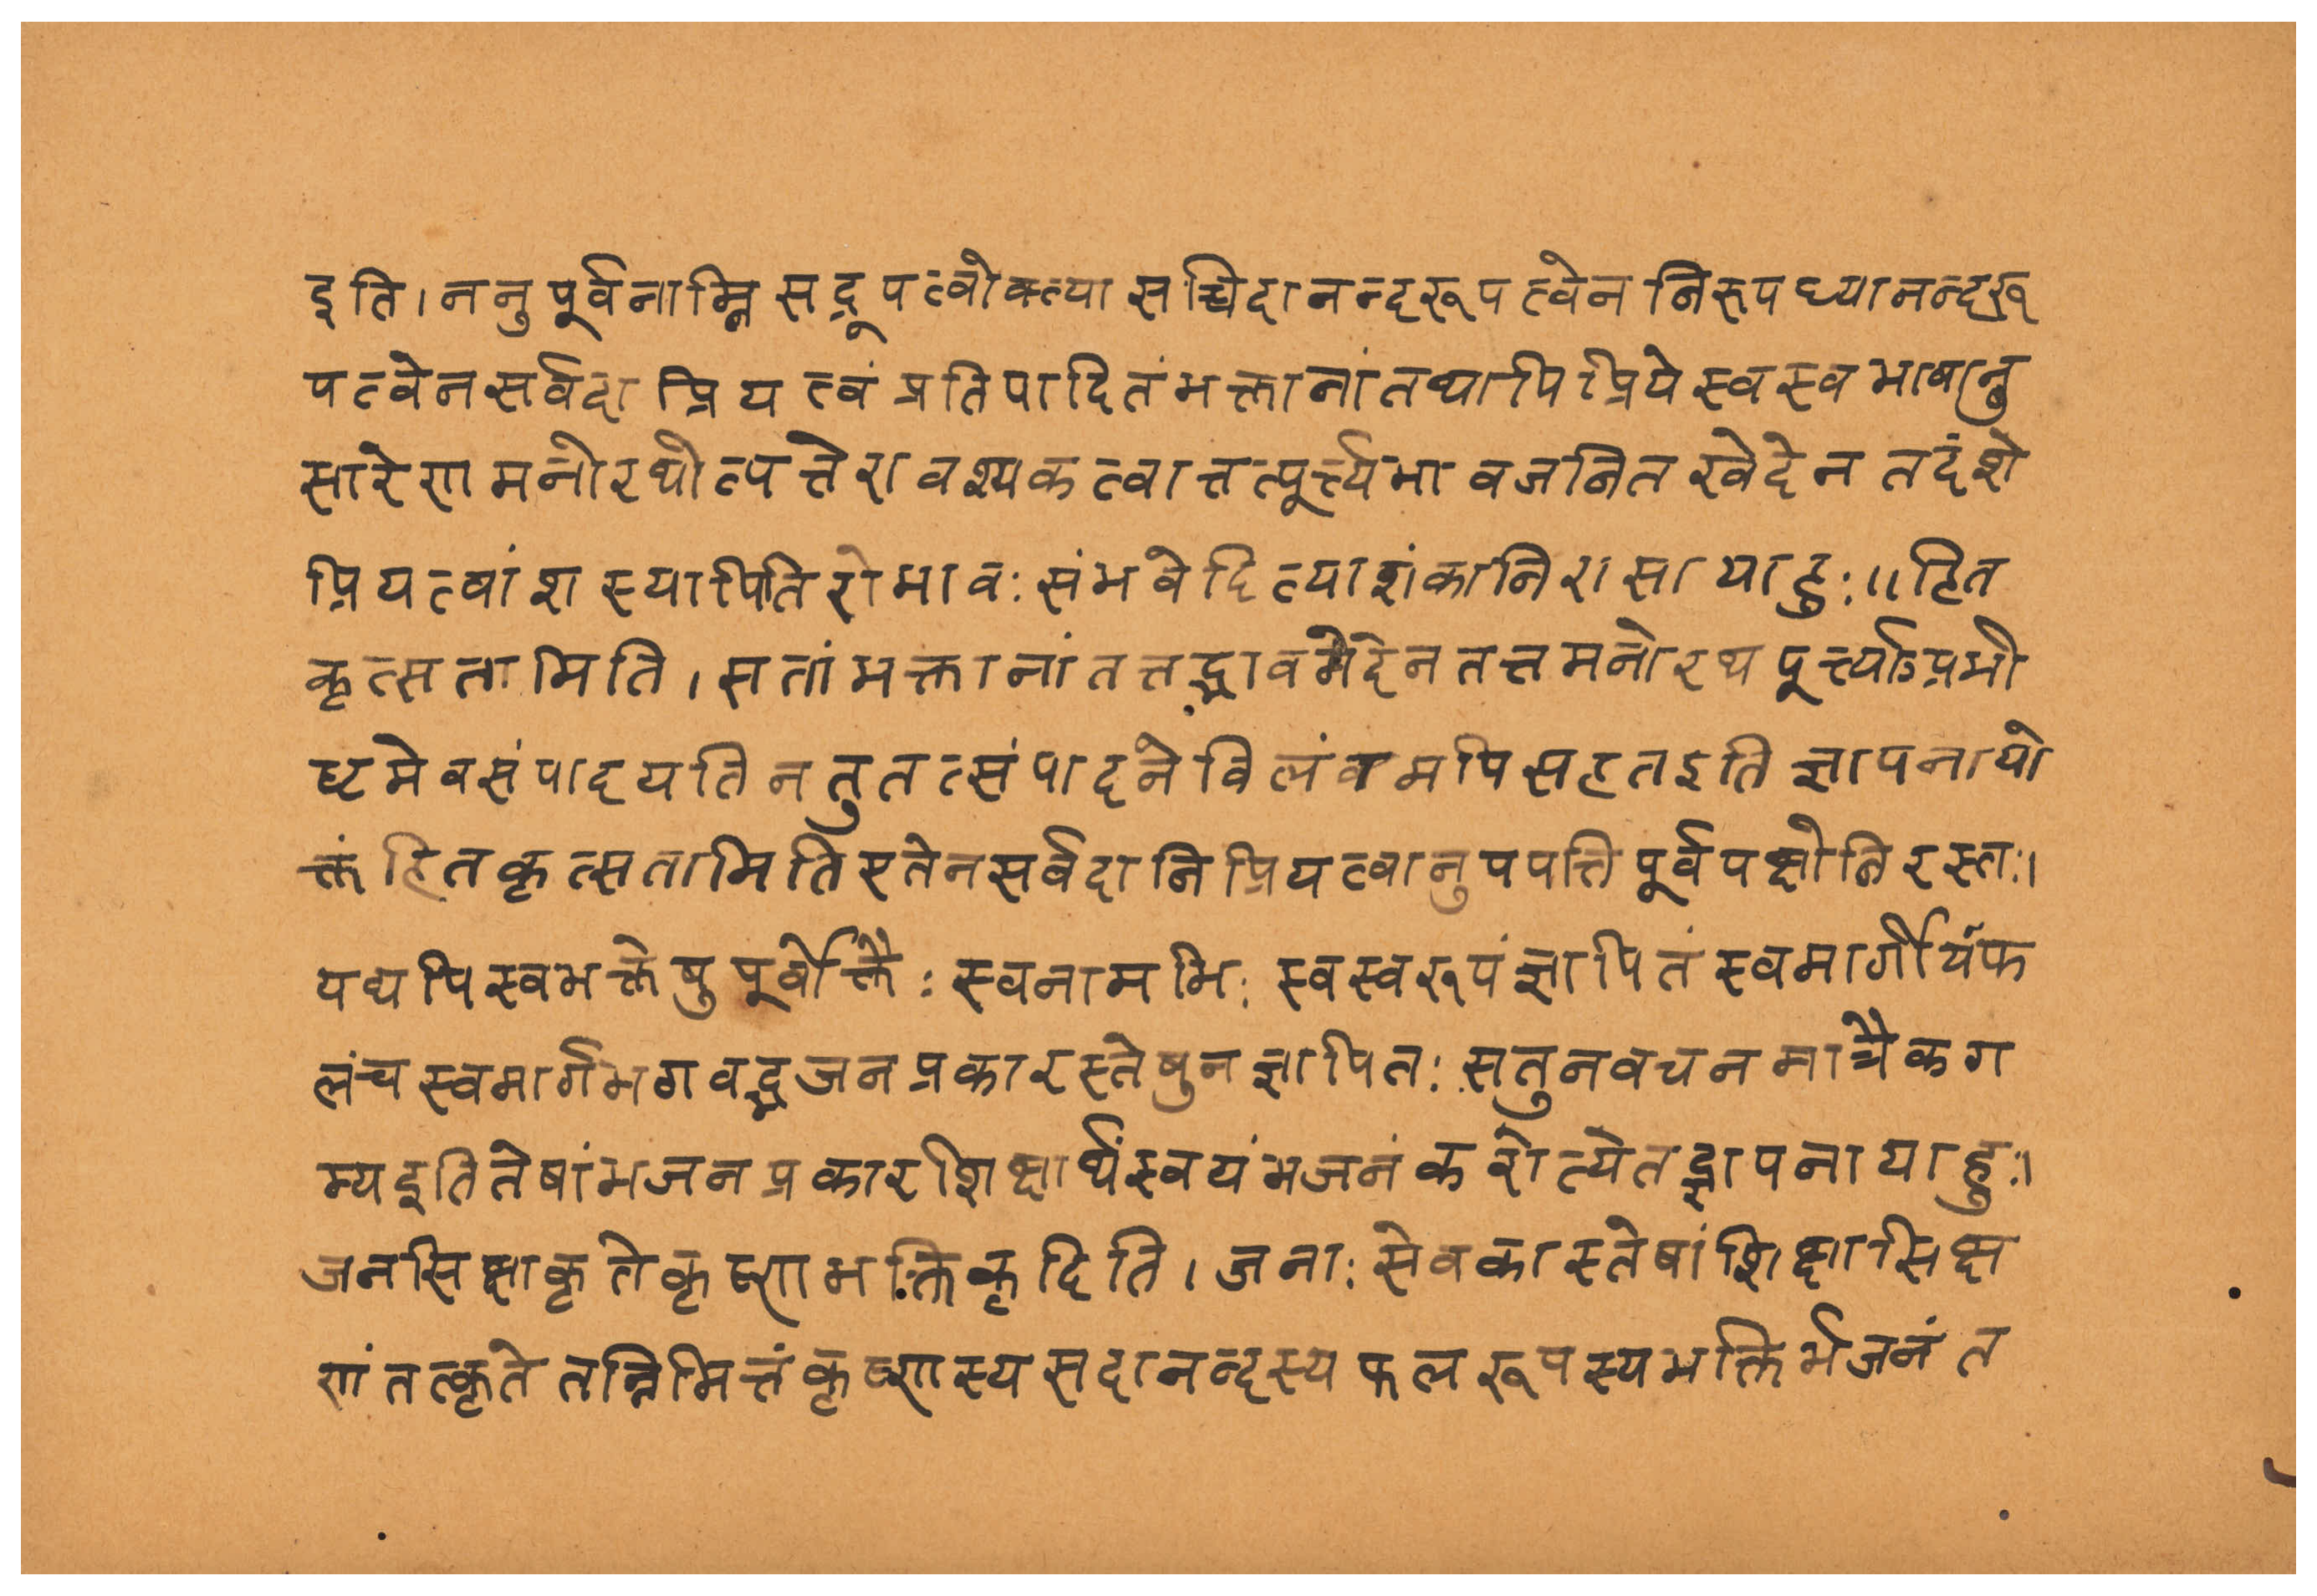 इति।ननुपूर्वनाम्निसद्रूपत्वोक्त्यासच्चिदानन्दरूपत्वेननिरूपध्यानन्दरू
पत्वेनसर्वदाप्रियत्वंप्रतिपादितंभक्तानांतथापिप्रियेस्वस्वभावानु
सारेणमनोरथोत्पत्तेरावश्यकत्वात्तत्पूर्त्त्यभावजनितखेदेनतदंशे
प्रियत्वांशस्यापितिरोभावःसंभवेदित्याशंकानिरासायाहुः॥हित
कृत्सतामिति।सतांभक्तानांतत्तद्भावभेदेनतत्तमनोरथपूर्त्त्याऽप्रभी
ष्टमेवसंपादयतिनतुतत्संपादनेविलंवमपिसहतइतिज्ञापनायो
क्तंहितकृत्सतामितिएतेनसर्वदानिप्रियत्वानुपपत्तिपूर्वपक्षोनिरस्तः।
यद्यपिस्वभक्तेषुपूर्वोक्तैःस्वनामभिःस्वस्वरूपंज्ञापितंस्वमार्गीर्यंफ
लंचस्वमार्गभगवद्भजनप्रकारस्तेषुनज्ञापितःसतुनवचनमात्रैकग
म्यइतितेषांभजनप्रकारशिक्षार्थंस्वयंभजनंकरोत्येतद्ज्ञापनायाहुः।
जनसिक्षाकृतेकृष्णभक्तिकृदिति।जनाःसेवकास्तेषांशिक्षासिक्ष
णंतत्कृतेतन्निमित्तंकृष्णस्यसदानन्दस्यफलरूपस्यभक्तिर्भजनंत